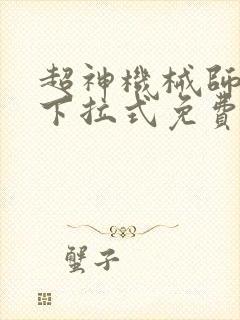 超神機械師
下拉式免費
蟹子